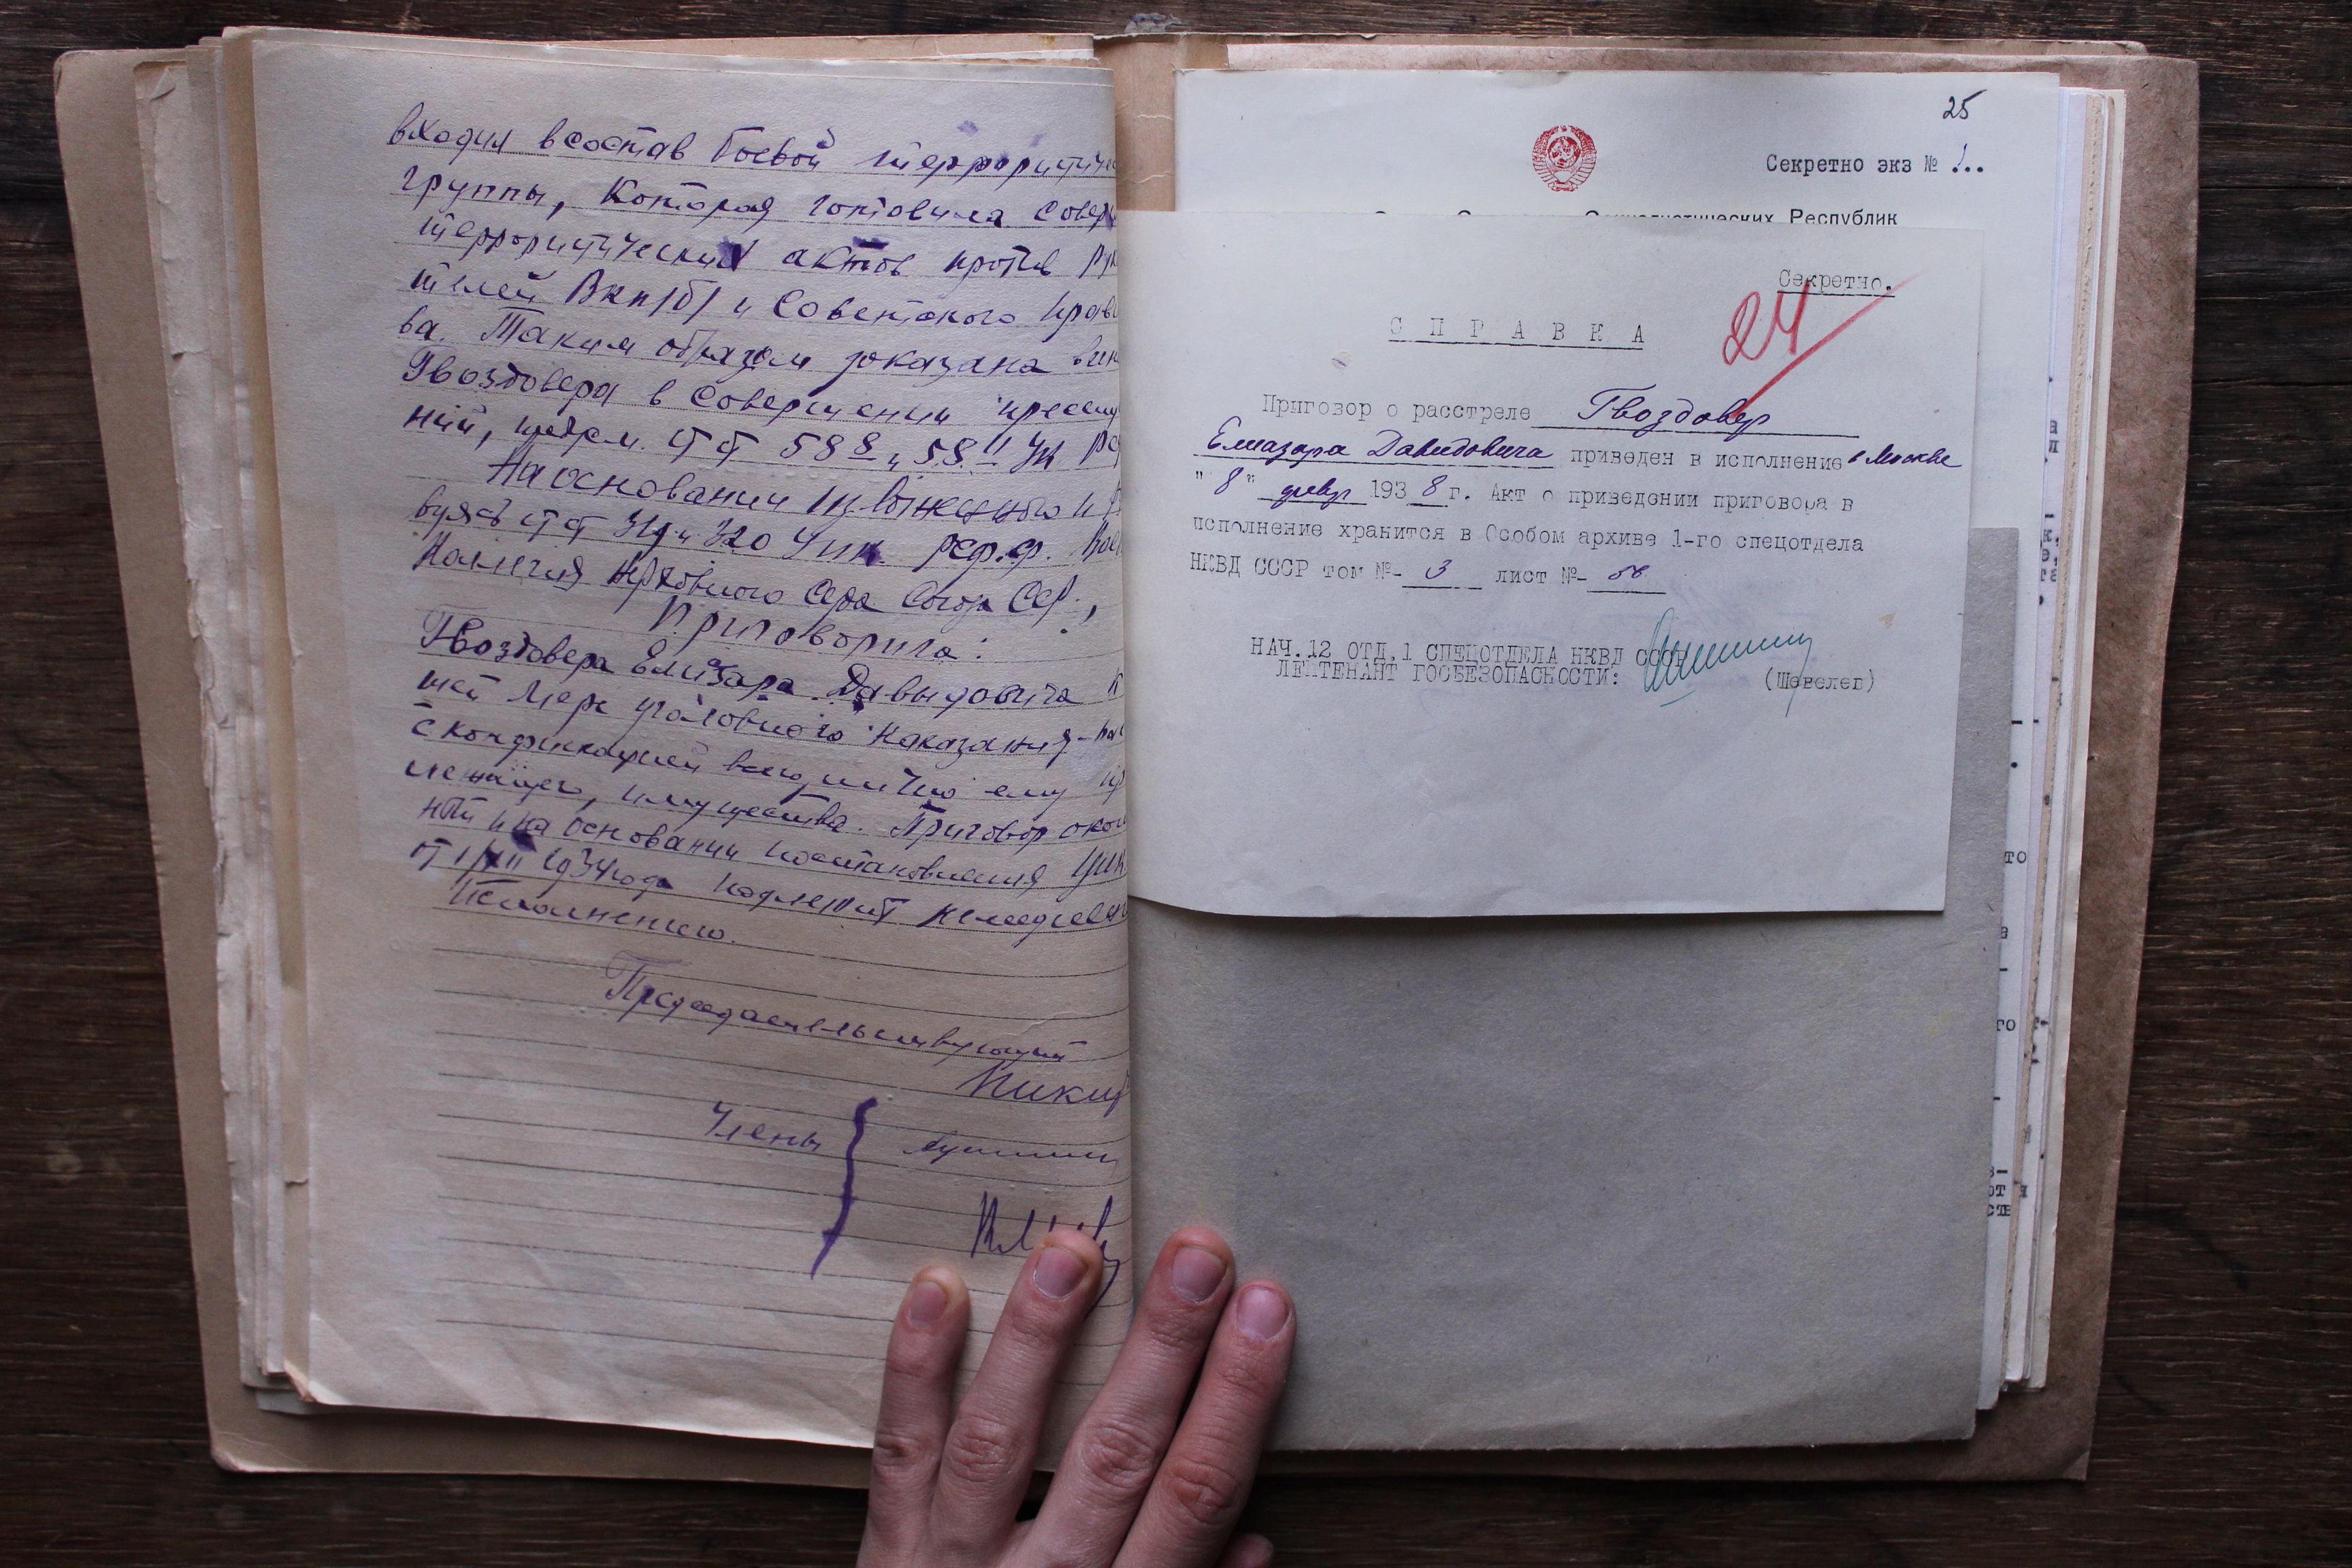 входил в состав боевой террористиче
группы, которая готовила совер
террористических актов против рук
телей ВКП/б/ и Советского прав
ва. Таким образом доказана вин
Гвоздовера в совершении преступ
ний, предусм. ст ст 58-8 и 58-11 УК РС
На основании изложенного и р
вуясь ст ст 319 и 320 УПК РСФ.
Коллегия Верховного Суда Союза ССР,
Приговорила:
Гвоздовера Елизара Давыдовича к
шей мере уголовного наказания -
с конфискацией всего, лично ему пр
лежащего, имущества. Приговор окон
ный и на основании постановления ЦИК
от 1/XII 1934 года подлежит немедлен
исполнению.
Председательствующий
Никит
Члены
25
Секретно экз № 1..
Социалистических Республик
Секретно.
24
СПРАВКА
Приговор о расстреле Гвоздовер
Елиазара Давидовича приведен в исполнение в Москве
"8" февр 1938 г. Акт о приведении приговора в
исполнение хранится в Особом архиве 1-го спецотдела
НКВД СССР том № 3 лист №
НАЧ.12 ОТД.1 СПЕЦОТДЕЛА НКВД СССР
ЛЕЙТЕНАНТ ГОСБЕЗОПАСНОСТИ:
(Шевелев)